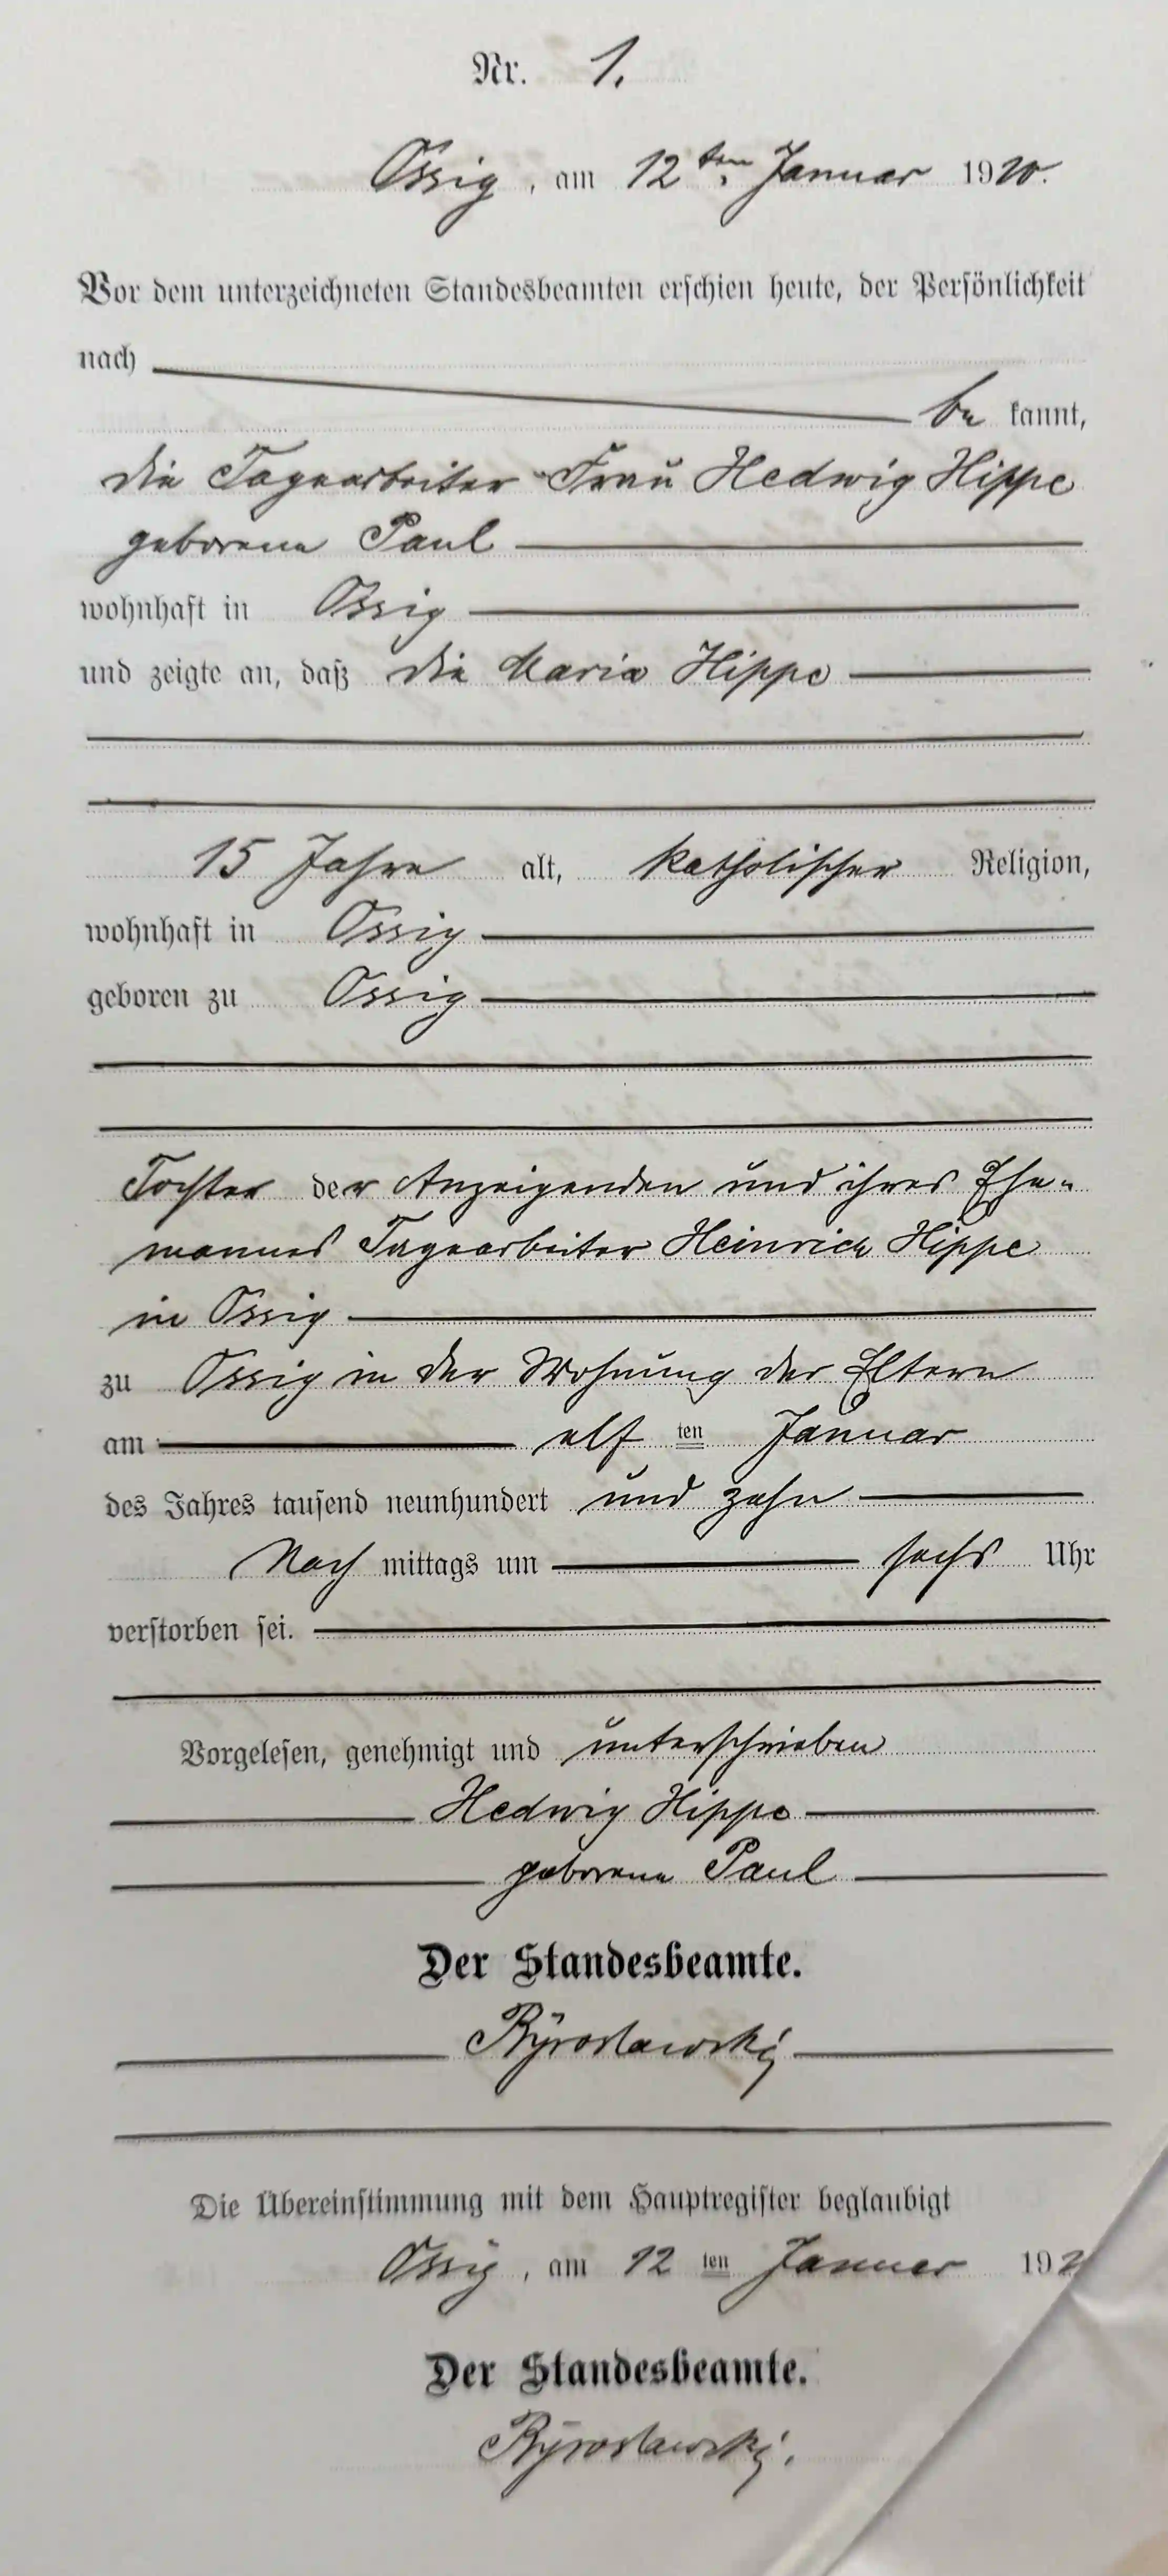 Nr. 1.
Ossig, am 12ten Januar 1920.
Vor dem unterzeichneten Standesbeamten erschien heute, der Persönlichkeit
nach
be kannt,
die Tagearbeiter Frau Hedwig Hippe
geborene Paul
wohnhaft in Ossig
und zeigte an, daß die Maria Hippe
15 Jahre alt, katholischer Religion,
wohnhaft in Ossig
geboren zu Ossig
Tochter der Anzeigenden und ihres Ehe-
mannes Tagearbeiter Heinrich Hippe
in Ossig
zu Ossig in der Wohnung der Eltern
am elf ten Januar
des Jahres tausend neunhundert und zehn
Nach mittags um sechs Uhr
verstorben sei.
Vorgelesen, genehmigt und unterschrieben
Hedwig Hippe
geborene Paul
Der Standesbeamte.
Die Übereinstimmung mit dem Hauptregister beglaubigt
Ossig, am 12 ten Januar 19
Der Standesbeamte.